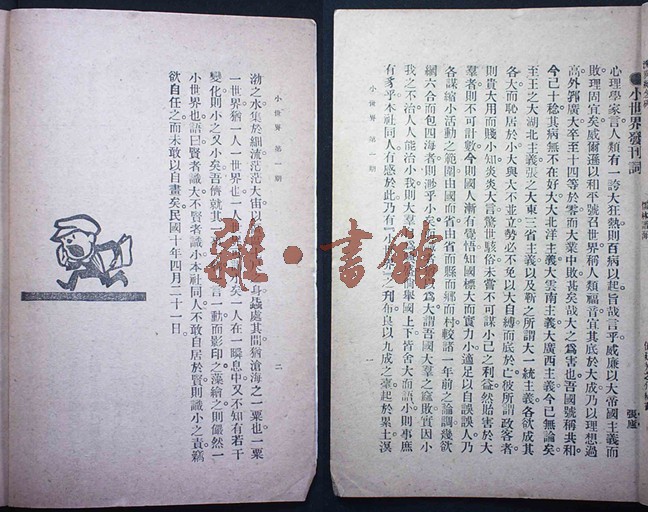 小世界發刊詞
心理學家言人類有一誇大狂熱則百病以起旨哉言乎威廉以大帝國主義而
敗理固宜矣威爾遜以和平號召世界稱人類福音宜其底於大成乃以理想過
高外鄰廣大卒至十四等於零而大業中敗甚矣哉大之爲害也吾國號稱共和
今已十稔其病無不在好大大北洋主義大雲南主義大廣西主義今已無論矣
王主之大湖北主義張之大東三省主義以及靳之所謂大一統主義各欲成其
各大而恥居於小大與大不並立勢必不免以大自縛而底於亡彼所謂政客者
則貴大用而賤小知炎炎大言驚世駭俗未嘗不可謀小己之利益然貽害於大
羣者則不可計數今則國人漸有覺悟知國標大而實力小適足以自誤誤人乃
各謀縮小活動之範圍由國而省由省而縣而鄉而村較諸一年前之論調幾欲
綱六合而包四海者則渺乎小矣 爲大謂吾國大羣之窳敗實因小
我之不治人人能治小我則大羣 舉國上下皆舍大而語小則事庶
有豸乎本社同人有感於此乃有一小世界之刊布良以九成之臺起於累土溟
小世界 第一期
一
渤之水集於細流茫茫大宙以 身蟲處其間猶滄海之一粟也一粟
一世界猶一人一世界也一人 小矣一人在一瞬息中又不知有若干
變化則小之又小矣吾儕就其 言一動而影印之藻繪之則儼然一
小世界也語曰賢者識大不賢者識小本社同人不敢自居於賢則識小之責竊
欲自任之而未敢以自畫矣民國十年四月二十一日
小世界 第一期
二
雜·書館